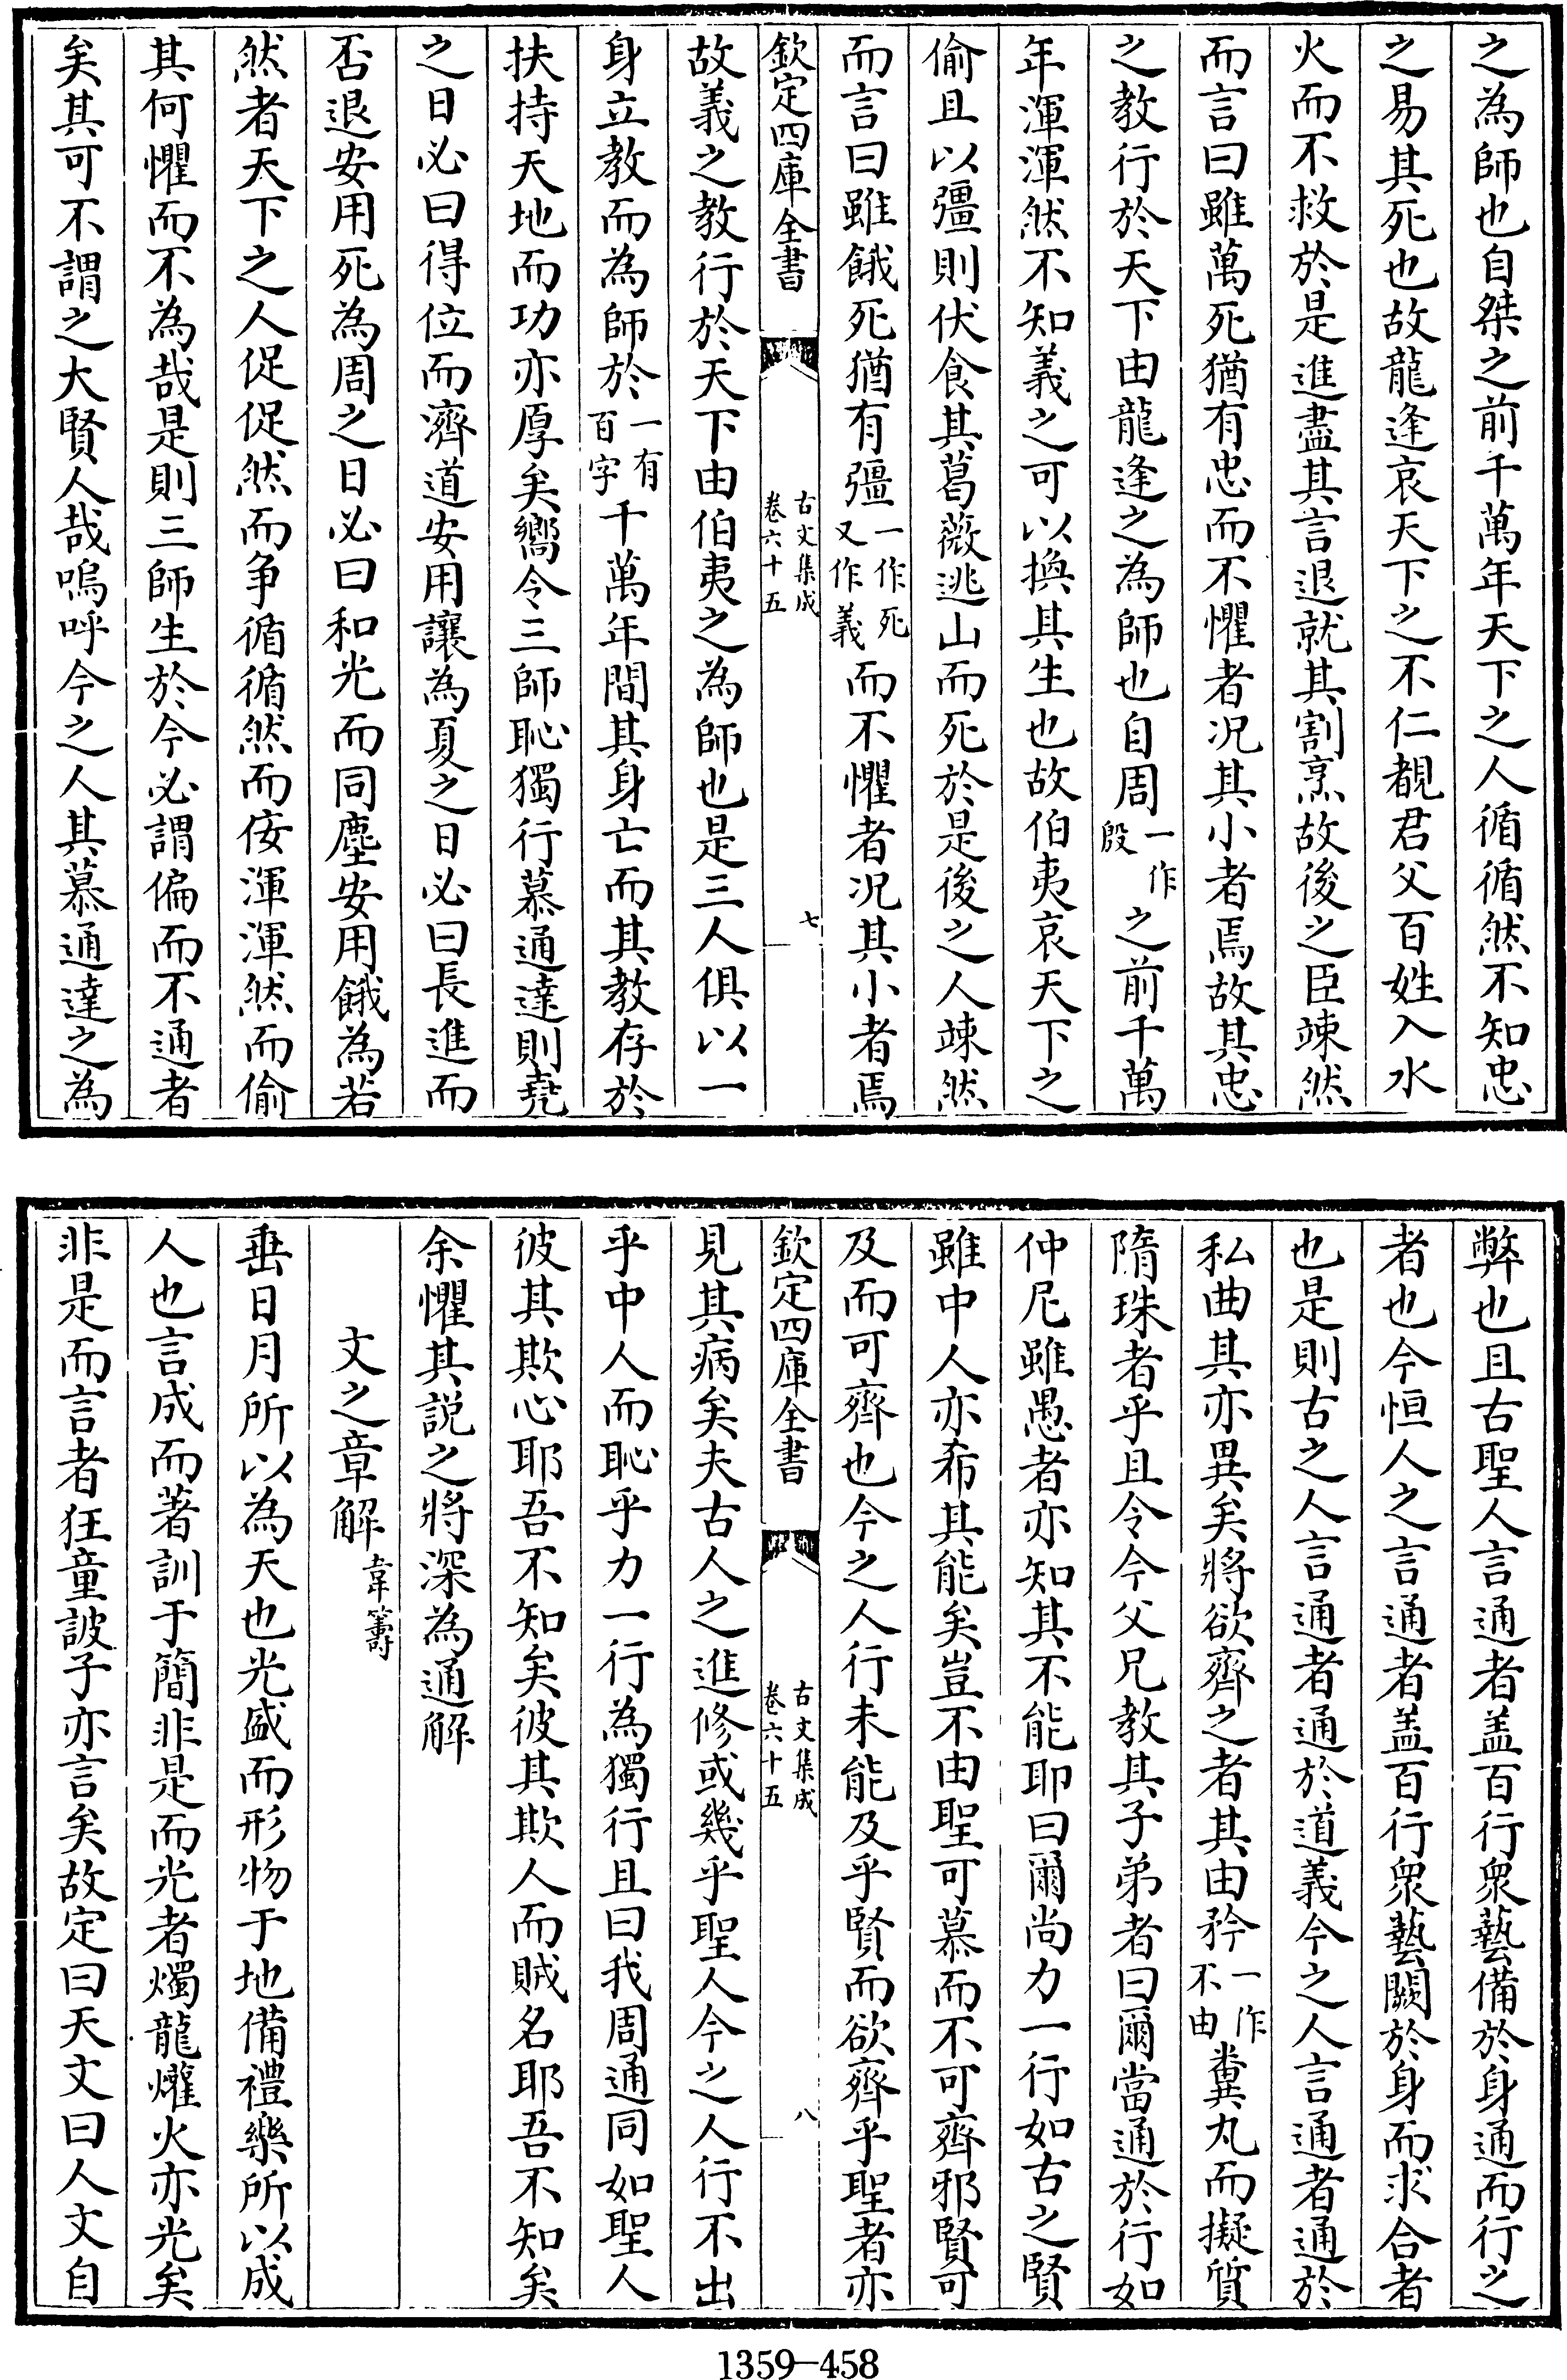 之為師也自桀之前千萬年天下之人循循然不知忠
之易其死也故龍逄哀天下之不仁覩君父百姓入水
火而不救於是進盡其言退就其割烹故後之臣竦然
而言曰雖萬死猶有忠而不懼者况其小者焉故其忠
之教行於天下由龍逄之為師也自周一作殷之前千萬
年渾渾然不知義之可以換其生也故伯夷哀天下之
偷且以彊則伏食其葛薇逃山而死於是後之人竦然
而言曰雖餓死猶有彊一作死又作義而不懼者况其小者焉
欽定四庫全書
古文集成
卷六十五
七
故義之教行於天下由伯夷之為師也是三人俱以一
身立教而為師於一有百字千萬年間其身亡而其教存於
扶持天地而功亦厚矣嚮令三師恥獨行慕通達則堯
之日必曰得位而濟道安用讓為夏之日必曰長進而
否退安用死為周之日必曰和光而同塵安用餓為若
然者天下之人促促然而争循循然而佞渾渾然而偷
其何懼而不為哉是則三師生於今必謂偏而不通者
矣其可不謂之大賢人哉嗚呼今之人其慕通達之為
弊也且古聖人言通者盖百行衆藝備於身通而行之
者也今恒人之言通者盖百行衆藝闕於身而求合者
也是則古之人言通者通於道義今之人言通者通於
私曲其亦異矣將欲齊之者其由矜一作不由糞丸而擬質
隋珠者乎且令今父兄教其子弟者曰爾當通於行如
仲尼雖愚者亦知其不能耶曰爾尚力一行如古之賢
雖中人亦希其能矣豈不由聖可慕而不可齊邪賢可
及而可齊也今之人行未能及乎賢而欲齊乎聖者亦
欽定四庫全書
古文集成
卷六十五
八
見其病矣夫古人之進修或幾乎聖人今之人行不出
乎中人而恥乎力一行為獨行且曰我周通同如聖人
彼其欺心耶吾不知矣彼其欺人而賊名耶吾不知矣
余懼其說之將深為通解
文之章解韋籌
垂日月所以為天也光盛而形物于地備禮樂所以成
人也言成而著訓于簡非是而光者燭龍爟火亦光矣
非是而言者狂童詖子亦言矣故定曰天文曰人文自
1359—458